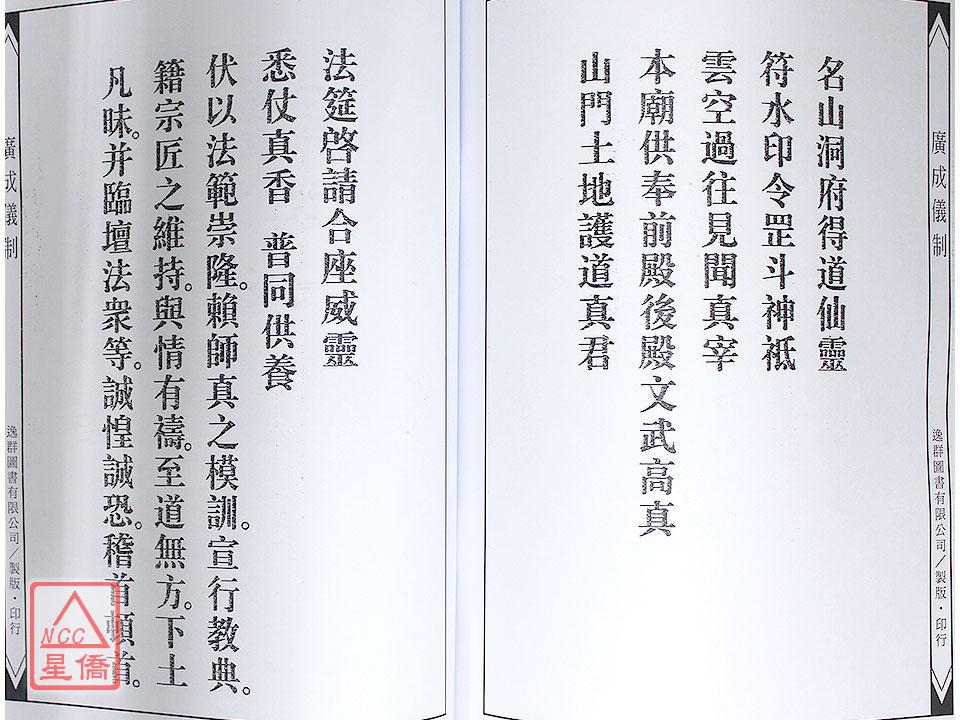 廣成儀制
逸群圖書有限公司／製版・印行
名山洞府得道仙靈
符水印令罡斗神祇
雲空過往見聞真宰
本廟供奉前殿後殿文武高真
山門土地護道真君
法筵啓請合座威靈
悉仗真香 普同供養
伏以法範崇隆。賴師真之模訓。宣行教典。
籍宗匠之維持。與情有禱。至道無方。下土
凡昧。并臨壇法衆等。誠惶誠恐。稽首頓首。
廣成儀制
逸群圖書有限公司／製版・印行
NCC
星僑